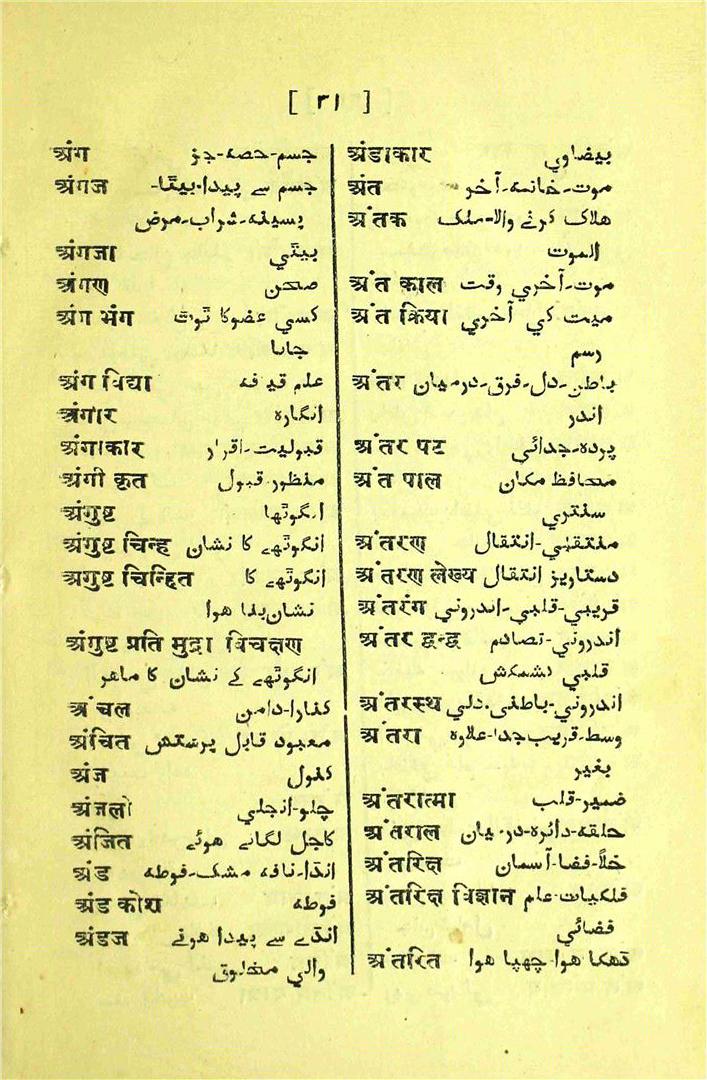 [ ٣١ ]
अंग جسم-حصہ-جز
अंगज جسم سے پیدا-بیٹا-
پسینہ-شراب-مرض
अंगजा بیٹي
अंगण صحن
अंग भंग کسي عضو کا ٹوٹ
جانا
अंग विद्या علم قیافہ
अंगार انگارہ
अंगाकार قبولیت-اقرار
अंगी कृत منظور-قبول
अंगुष्ट انگوٹھا
अंगुष्ट चिन्ह انگوٹھے کا نشان
अगुष्ट चिन्हित انگوٹھے کا
نشان بنا ھوا
अंगुष्ट प्रति मुद्रा विचक्षण
انگوٹھے کے نشان کا ماھر
अंचल کنارا-دامن
अंचित معبود قابل پرستش
अंज کنول
अंजलो چلو-انجلي
अंजित کاجل لگائے ھوئے
अंड انڈا-نافہ مشک-فوطہ
अंड कोश فوطہ
अंडज انڈے سے پیدا ھونے
والي مخلوق
अंडाकार بیضاوي
अंत موت-خاتمہ-آخر
अंतक ھلاک کرنے والا-ملک
الموت
अंत काल موت-آخري وقت
अंत क्रिया میت کي آخري
رسم
अंतर باطن-دل-فرق-درمیان
اندر
अंतर पट پردہ-جدائي
अंत पाल محافظ مکان
سنتري
अंतरण منتقلي-انتقال
अंतरण लेख्य دستاریز انتقال
अंतरंग قریبي-قلبي-اندروني
अंतर द्वन्द्व اندروني-تصادم
قلبي کشمکش
अंतरस्थ اندروني-باطنی-دلي
अंतरा وسط-قریب-جدا-علاوہ
بغیر
अंतरात्मा ضمیر-قلب
अंतराल حلقہ-دائرہ-درمیان
अंतरिक्ष خلاً-فضا-آسمان
अंतरिक्ष विज्ञान فلکیات-علم
فضائي
अंतरित ڈھکا ھوا-چھپا ھوا